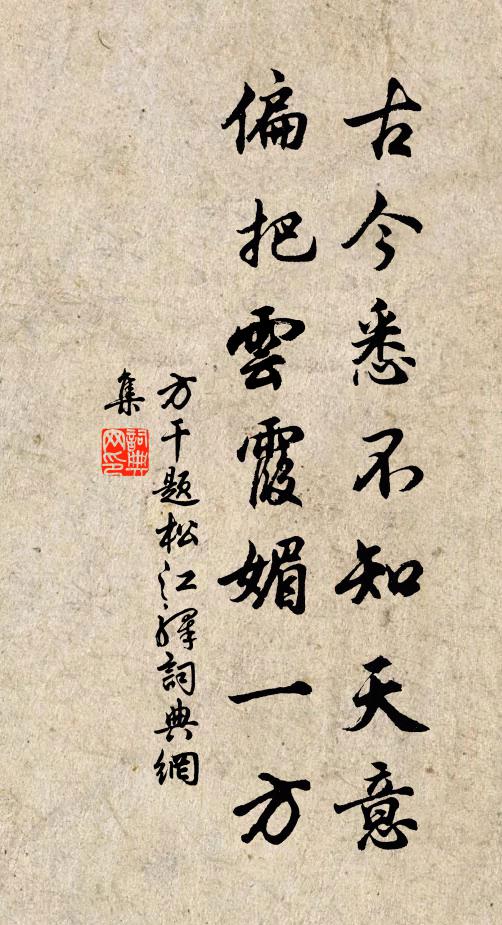 古今悉不知天意
偏把雲霞媚一方
方干題松江驛詞典網
集
詞典
网印